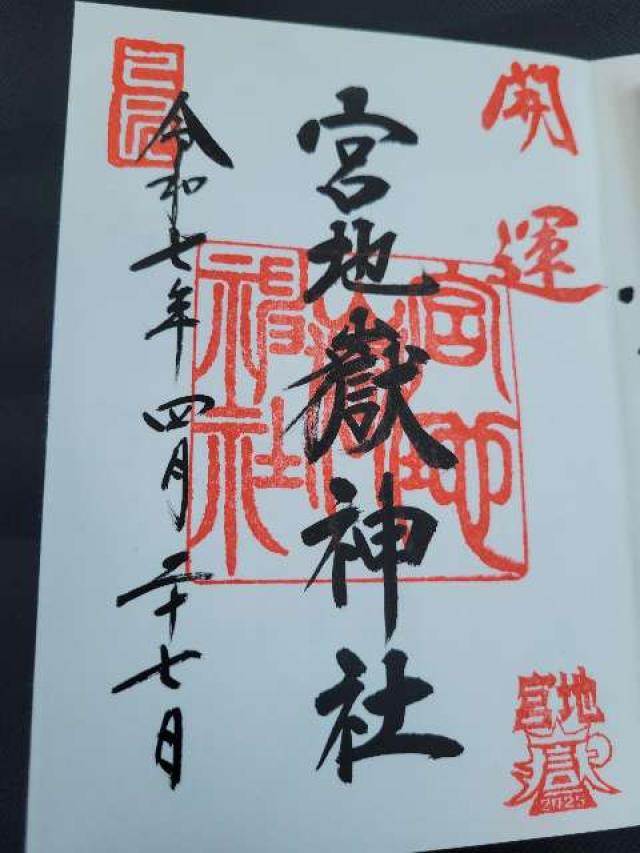 開運
宮地嶽神社
宮地嶽神社
令和七年四月二十七日
己巳
宮地
嶽
2025